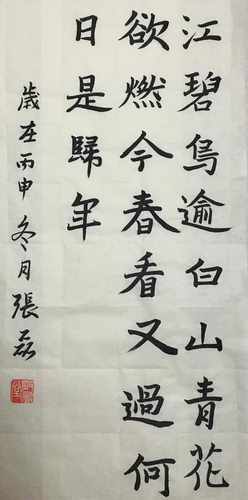 江碧鳥逾白山青花
欲燃今春看又過何
日是歸年
歲在丙申冬月張磊